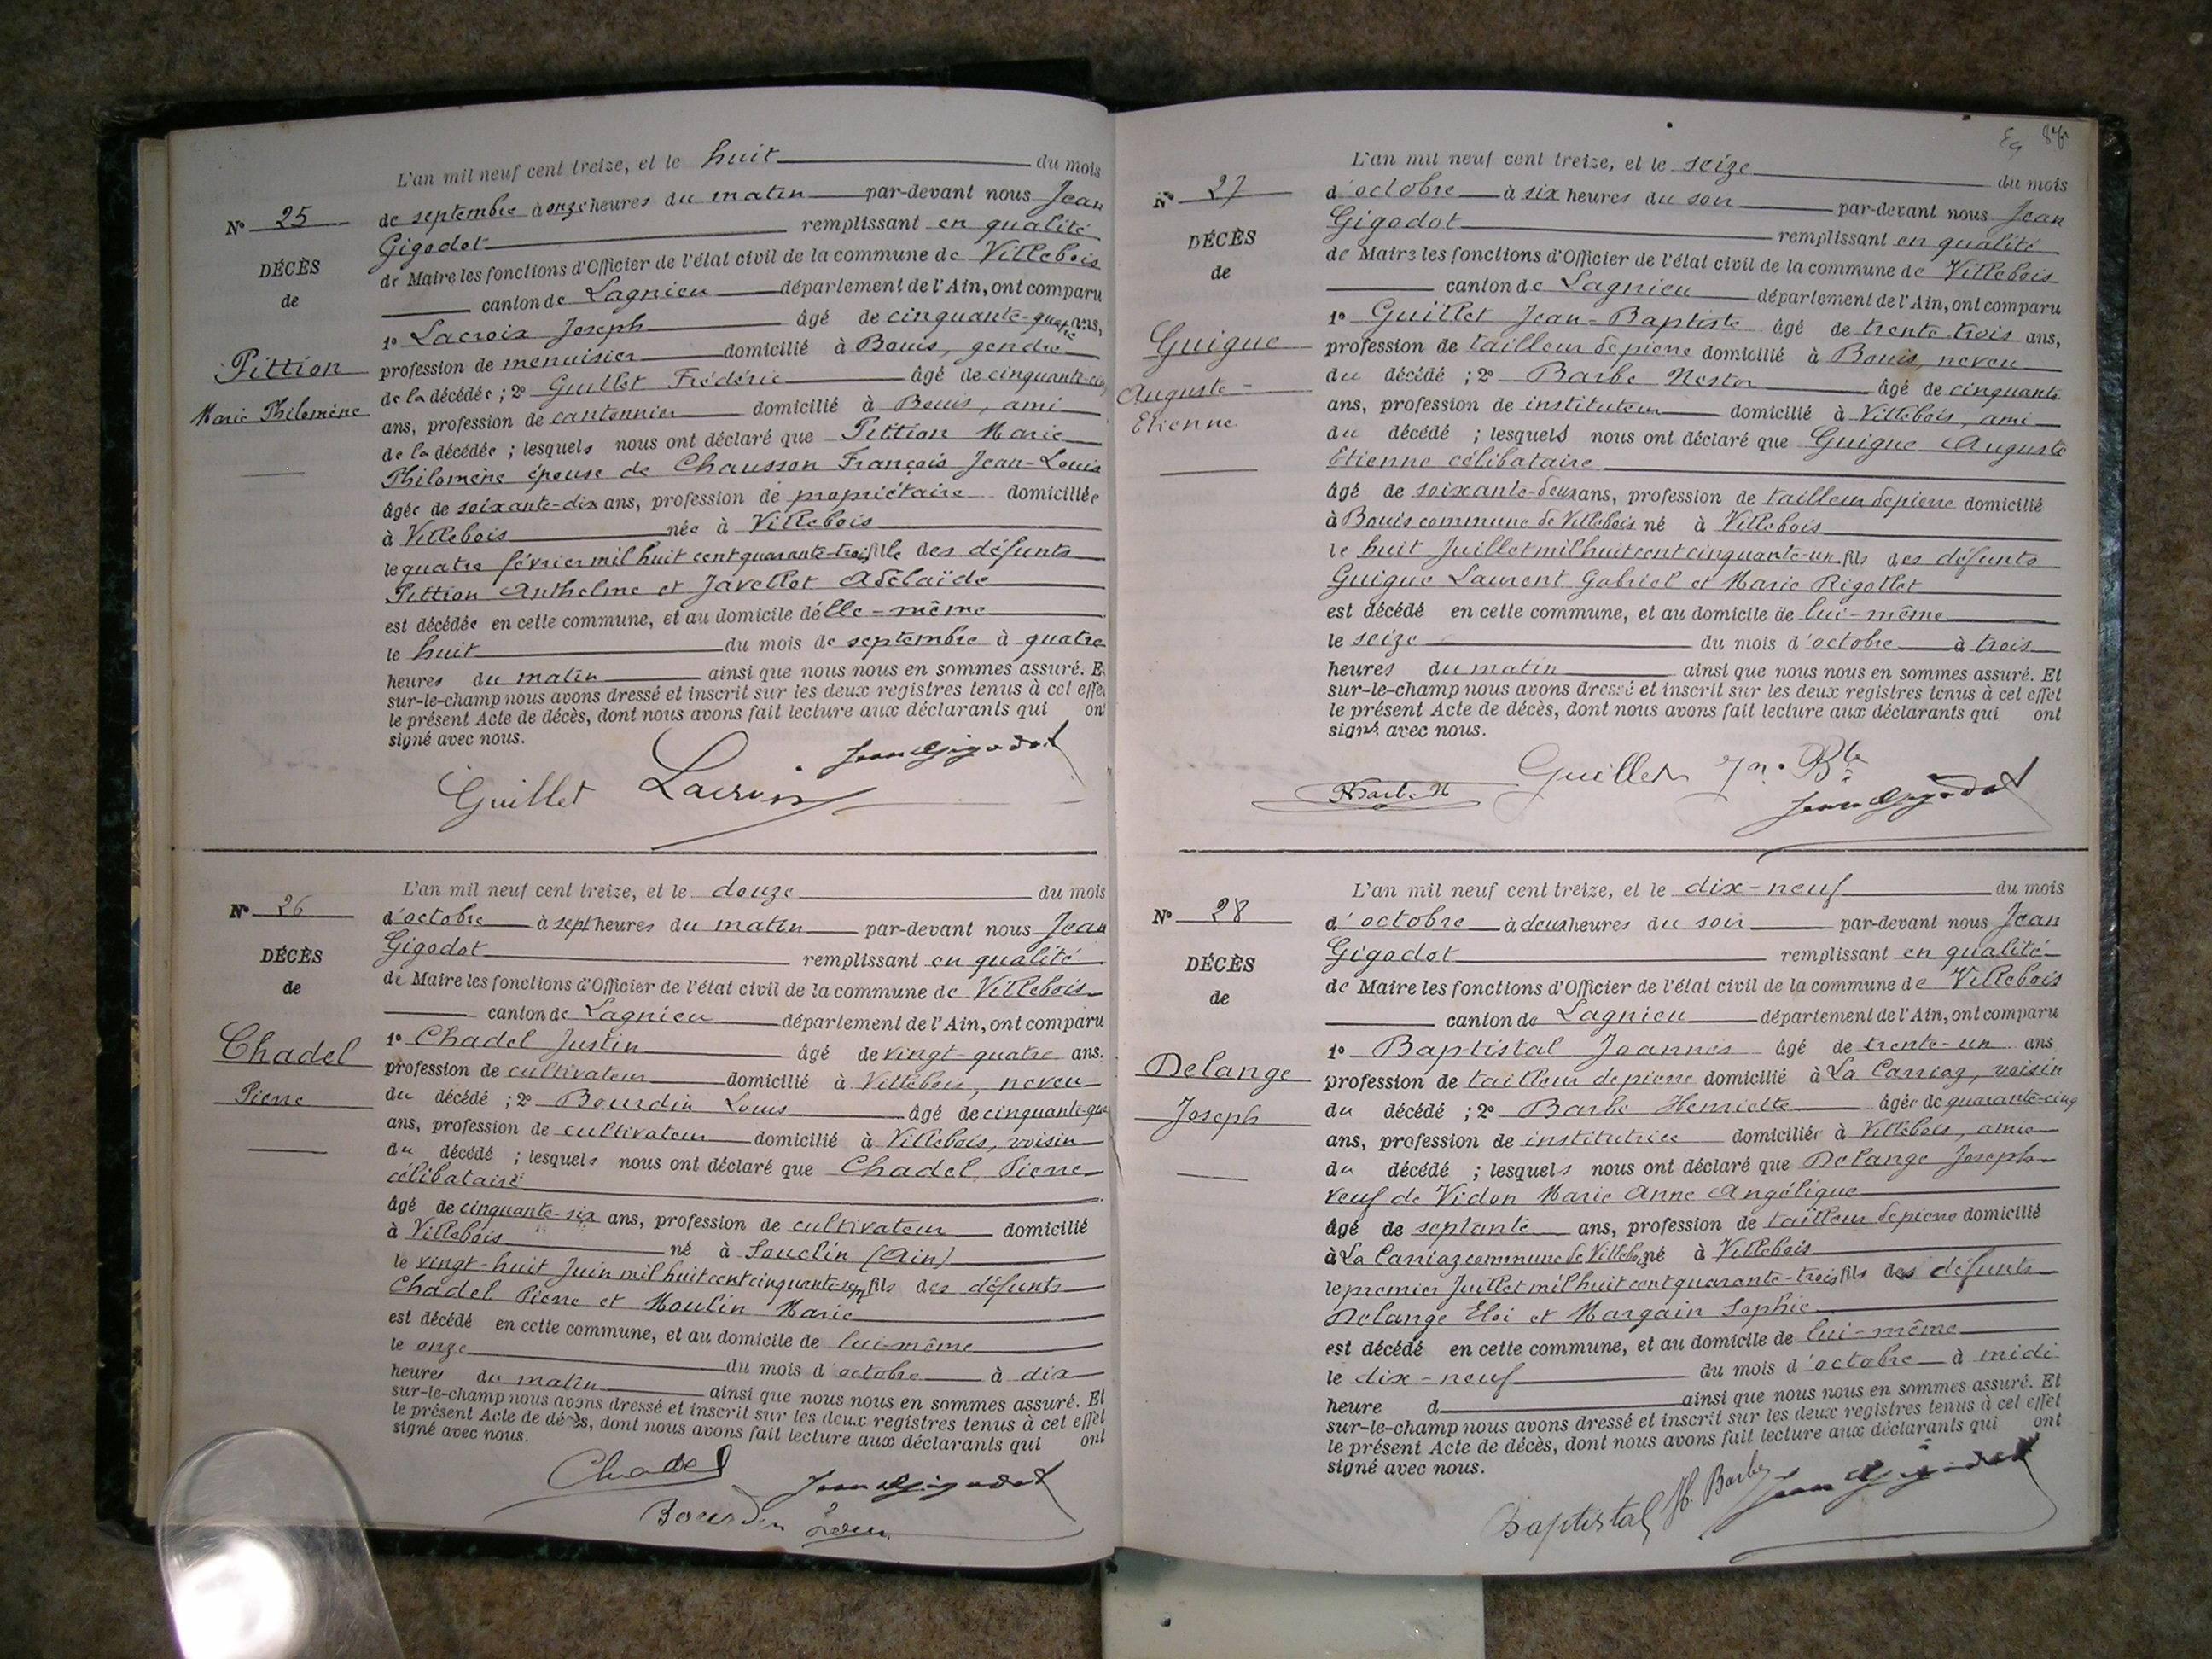 L'an mil neuf cent treize, et le huit du mois
N° 25
DÉCÈS
de
Pittion
Marie Philomène
de septembre à onze heures du matin par-devant nous Jean
Gigodot remplissant en qualité
de Maire les fonctions d'Officier de l'état civil de la commune de Villebois
canton de Lagnieu département de l'Ain, ont comparu
1° Lacroix Joseph âgé de cinquante-quatre ans,
profession de menuisier domicilié à Bouis, gendre
de la décédée ; 2° Guillet Frédéric âgé de cinquante-cinq
ans, profession de cantonnier domicilié à Bouis, ami
de la décédée ; lesquels nous ont déclaré que Pittion Marie
Philomène épouse de Chausson François Jean-Louis
âgée de soixante-dix ans, profession de propriétaire domiciliée
à Villebois née à Villebois
le quatre février mil huit cent quarante-trois fille des défunts
Pittion Anthelme et Javellot Adélaïde
est décédée en cette commune, et au domicile d'elle-même
le huit du mois de septembre à quatre
heures du matin ainsi que nous nous en sommes assuré. E
sur-le-champ nous avons dressé et inscrit sur les deux registres tenus à cet effe
le présent Acte de décès, dont nous avons fait lecture aux déclarants qui ont
signé avec nous.
Guillet Lacroix Jean Gigodot
L'an mil neuf cent treize, et le douze du mois
N° 26
DÉCÈS
de
Chadel
Pierre
d'octobre à sept heures du matin par-devant nous Jean
Gigodot remplissant en qualité
de Maire les fonctions d'Officier de l'état civil de la commune de Villebois
canton de Lagnieu département de l'Ain, ont comparu
1° Chadel Justin âgé de vingt-quatre ans.
profession de cultivateur domicilié à Villebois, neveu
du décédé ; 2° Bourdin Louis âgé de cinquante-qua
ans, profession de cultivateur domicilié à Villebois, voisin
du décédé ; lesquels nous ont déclaré que Chadel Pierre
célibataire
âgé de cinquante-six ans, profession de cultivateur domicilié
à Villebois né à Souclin (Ain)
le vingt-huit Juin mil huit cent cinquante-sept fils des défunts
Chadel Pierre et Moulin Marie
est décédé en cette commune, et au domicile de lui-même
le onze du mois d'octobre à dix
heures du matin ainsi que nous nous en sommes assuré. Et
sur-le-champ nous avons dressé et inscrit sur les deux registres tenus à cet effet
le présent Acte de décès, dont nous avons fait lecture aux déclarants qui ont
signé avec nous.
Chadel Jean Gigodot
Bourdin Louis
L'an mil neuf cent treize, et le seize du mois
N° 27
DÉCÈS
de
Guigue
Auguste-
Etienne
d'octobre à six heures du soir par-devant nous Jean
Gigodot remplissant en qualité
de Maire les fonctions d'Officier de l'état civil de la commune de Villebois
canton de Lagnieu département de l'Ain, ont comparu
1° Guillet Jean-Baptiste âgé de trente-trois ans,
profession de tailleur de pierre domicilié à Bouis, neveu
du décédé ; 2° Barbe Nestor âgé de cinquante
ans, profession de instituteur domicilié à Villebois, ami
du décédé ; lesquels nous ont déclaré que Guigue Auguste
Etienne célibataire
âgé de soixante-deux ans, profession de tailleur de pierre domicilié
à Bouis commune de Villebois né à Villebois
le huit Juillet mil huit cent cinquante-un fils des défunts
Guigue Laurent Gabriel et Marie Rigollet
est décédé en cette commune, et au domicile de lui-même
le seize du mois d'octobre à trois
heures du matin ainsi que nous nous en sommes assuré. Et
sur-le-champ nous avons dressé et inscrit sur les deux registres tenus à cet effet
le présent Acte de décès, dont nous avons fait lecture aux déclarants qui ont
signé avec nous.
Barbe N Guillet Jn. Bte Jean Gigodot
L'an mil neuf cent treize, et le dix-neuf du mois
N° 28
DÉCÈS
de
Delange
Joseph
d'octobre à deux heures du soir par-devant nous Jean
Gigodot remplissant en qualité
de Maire les fonctions d'Officier de l'état civil de la commune de Villebois
canton de Lagnieu département de l'Ain, ont comparu
1° Baptistal Joannès âgé de trente-un ans
profession de tailleur de pierre domicilié à La Carriaz, voisin
du décédé ; 2° Barbe Henriette âgée de quarante-cinq
ans, profession de institutrice domiciliée à Villebois, amie
du décédé ; lesquels nous ont déclaré que Delange Joseph
veuf de Vidon Marie Anne Angélique
âgé de septante ans, profession de tailleur de pierre domicilié
à La Carriaz commune de Villebois né à Villebois
le premier Juillet mil huit cent quarante-trois fils des défunts
Delange Eloi et Margain Sophie
est décédé en cette commune, et au domicile de lui-même
le dix-neuf du mois d'octobre à midi
heure d ainsi que nous nous en sommes assuré. Et
sur-le-champ nous avons dressé et inscrit sur les deux registres tenus à cet effet
le présent Acte de décès, dont nous avons fait lecture aux déclarants qui ont
signé avec nous.
Baptistal H. Barbe Jean Gigodot